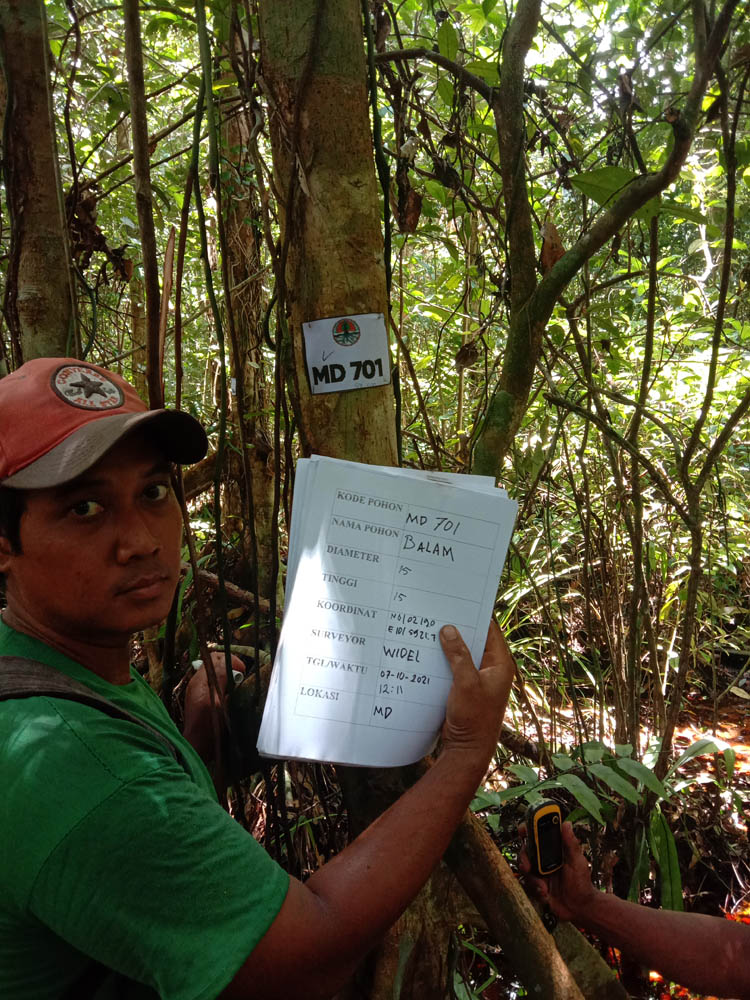 MD 701
KODE POHON MD 701
NAMA POHON BALAM
DIAMETER 15
TINGGI 15
KOORDINAT
SURVEYOR WIDEL
TGL/WAKTU 07-10-2021
12:11
LOKASI MD